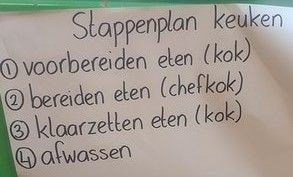 Stappenplan keuken
① voorbereiden eten (kok)
② bereiden eten (chefkok)
③ klaarzetten eten (kok)
④ afwassen